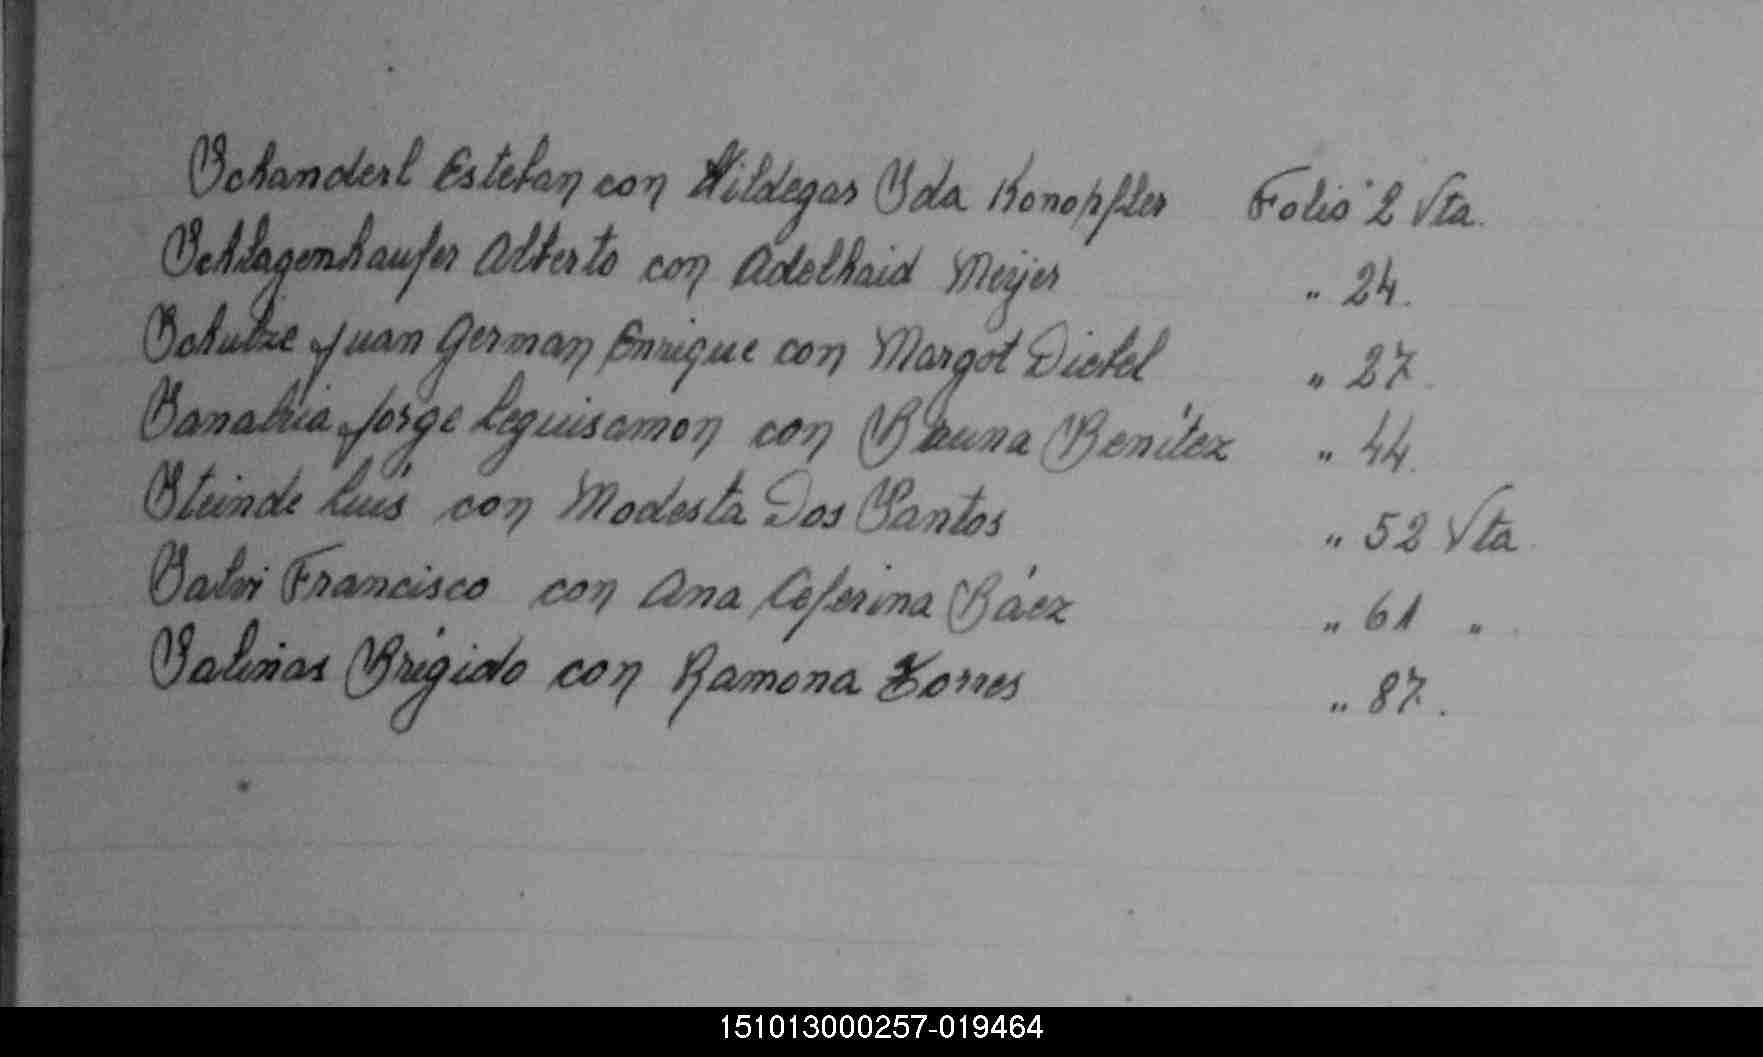 Schanderl Esteban con Hildegar Yda Konopfler Folio 2 Vta.
Schlagenhaufer Alberto con Adelhaid Meyer " 24.
Schulze Juan German Enrique con Margot Dietel " 27.
Sanabria Jorge Leguisamon con Bauna Benítez " 44.
Steinde Luis con Modesta Dos Santos " 52 Vta
Salvi Francisco con Ana Ceferina Báez " 61 "
Salinas Brígido con Ramona Torres " 87.
151013000257-019464